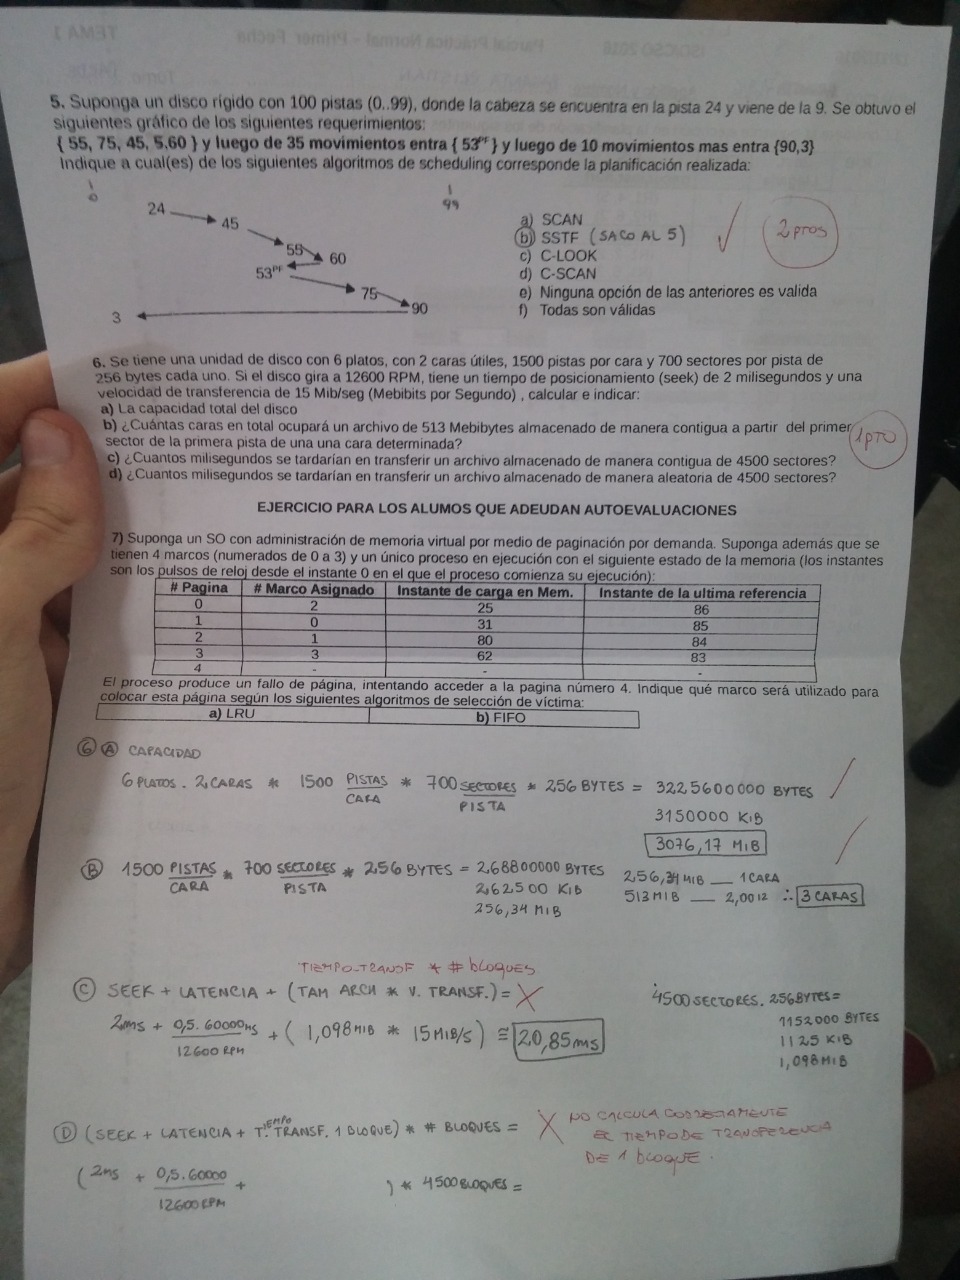 TEMA 1
Parcial Práctica Normal - Primer Fecha
ISO/CSO 2016
5. Suponga un disco rígido con 100 pistas (0..99), donde la cabeza se encuentra en la pista 24 y viene de la 9. Se obtuvo el
siguientes gráfico de los siguientes requerimientos:
{ 55, 75, 45, 5,60 } y luego de 35 movimientos entra { 53PF } y luego de 10 movimientos mas entra {90,3}
Indique a cual(es) de los siguientes algoritmos de scheduling corresponde la planificación realizada:
0
99
24
45
55
60
53PF
75
90
3
a) SCAN
b) SSTF (SACO AL 5)
c) C-LOOK
d) C-SCAN
e) Ninguna opción de las anteriores es valida
f) Todas son válidas
2 ptos
6. Se tiene una unidad de disco con 6 platos, con 2 caras útiles, 1500 pistas por cara y 700 sectores por pista de
256 bytes cada uno. Si el disco gira a 12600 RPM, tiene un tiempo de posicionamiento (seek) de 2 milisegundos y una
velocidad de transferencia de 15 Mib/seg (Mebibits por Segundo) , calcular e indicar:
a) La capacidad total del disco
b) ¿Cuántas caras en total ocupará un archivo de 513 Mebibytes almacenado de manera contigua a partir del primer
sector de la primera pista de una una cara determinada?
c) ¿Cuantos milisegundos se tardarían en transferir un archivo almacenado de manera contigua de 4500 sectores?
d) ¿Cuantos milisegundos se tardarían en transferir un archivo almacenado de manera aleatoria de 4500 sectores?
1 PTO
EJERCICIO PARA LOS ALUMOS QUE ADEUDAN AUTOEVALUACIONES
7) Suponga un SO con administración de memoria virtual por medio de paginación por demanda. Suponga además que se
tienen 4 marcos (numerados de 0 a 3) y un único proceso en ejecución con el siguiente estado de la memoria (los instantes
son los pulsos de reloj desde el instante 0 en el que el proceso comienza su ejecución):
# Pagina # Marco Asignado Instante de carga en Mem. Instante de la ultima referencia
0 2 25 86
1 0 31 85
2 1 80 84
3 3 62 83
4 - - -
El proceso produce un fallo de página, intentando acceder a la pagina número 4. Indique qué marco será utilizado para
colocar esta página según los siguientes algoritmos de selección de víctima:
a) LRU b) FIFO
6 A CAPACIDAD
6 PLATOS . 2 CARAS * 1500 PISTAS/CARA * 700 SECTORES/PISTA * 256 BYTES = 3225600000 BYTES
3150000 KiB
3076,17 MiB
B 1500 PISTAS/CARA * 700 SECTORES/PISTA * 256 BYTES = 268800000 BYTES
262500 KiB
256,34 MiB
256,34 MiB __ 1 CARA
513 MiB __ 2,0012 ∴ 3 CARAS
TIEMPO-TRANSF * # bloques
C SEEK + LATENCIA + (TAM ARCH * V. TRANSF.) =
2ms + 0,5.60000ms/12600 RPM + ( 1,098 MiB * 15 MiB/S ) ≅ 20,85 ms
4500 SECTORES. 256 BYTES =
1152000 BYTES
1125 KiB
1,098 MiB
D (SEEK + LATENCIA + TIEMPO TRANSF. 1 BLOQUE) * # BLOQUES =
NO CALCULA CORRECTAMENTE
EL TIEMPO DE TRANSFERENCIA
DE 1 bloque.
(2ms + 0,5.60000/12600 RPM + ) * 4500 BLOQUES =